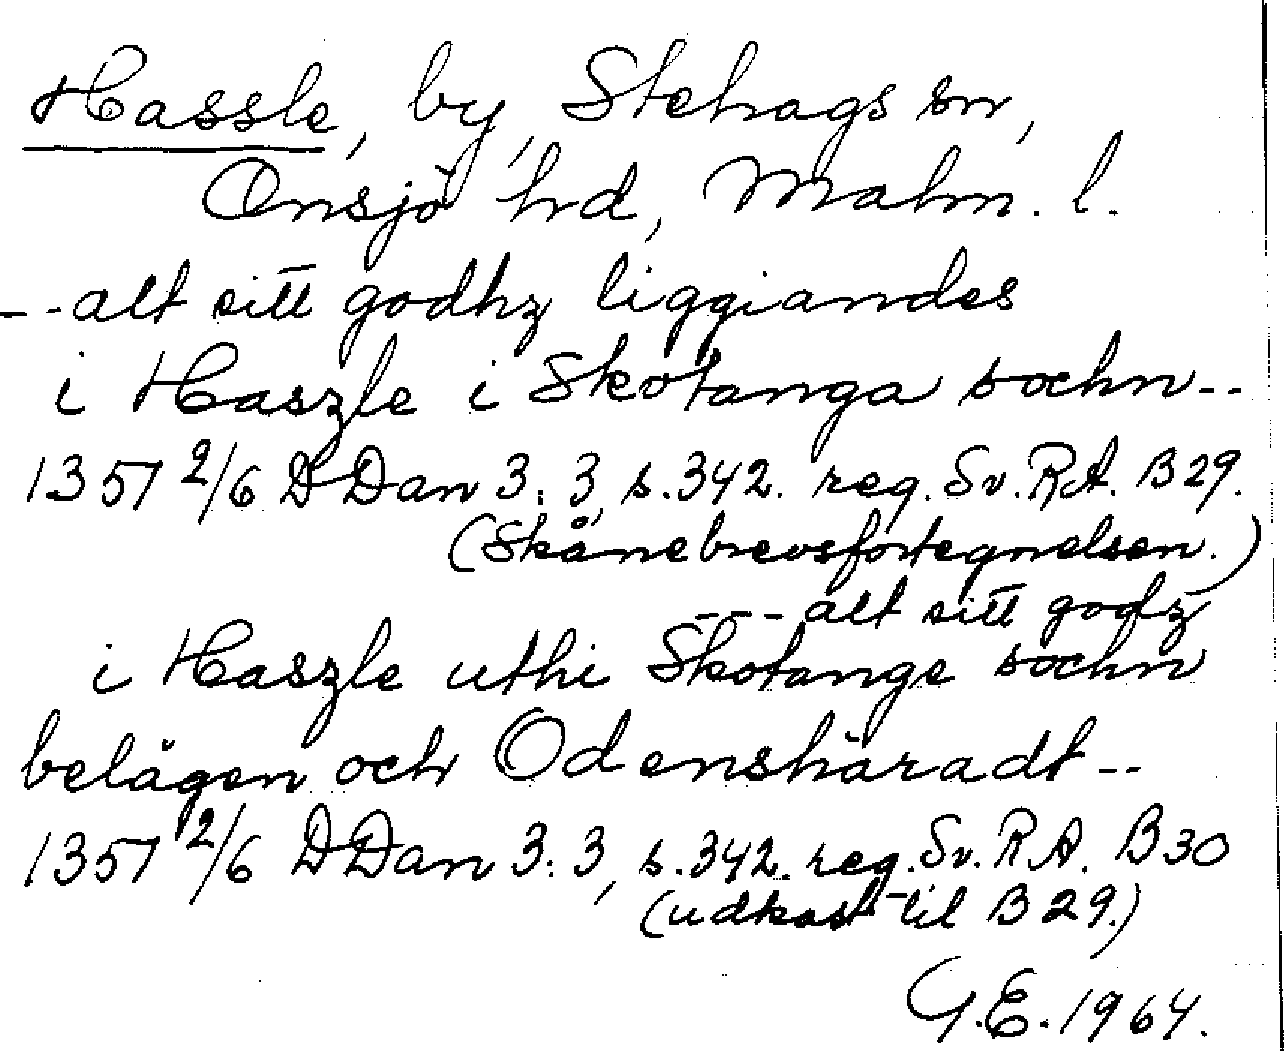 Hassle, by, Stehags sn,
Onsjö hd, Malm. l.
--alt sitt godhz liggiandes
i Haszle i Skotanga sochn--
1357 2/6 DDan 3:3, s.342. reg. Sv. RA. B29.
(Skånebrevsfortegnelsen.)
---alt sitt godz
i Haszle uthi Skotange sochn
belägen och Odenshäradt--
1357 2/6 DDan 3:3, s.342. reg. Sv. R.A. B30
(udkast til B29.)
G.E. 1964.